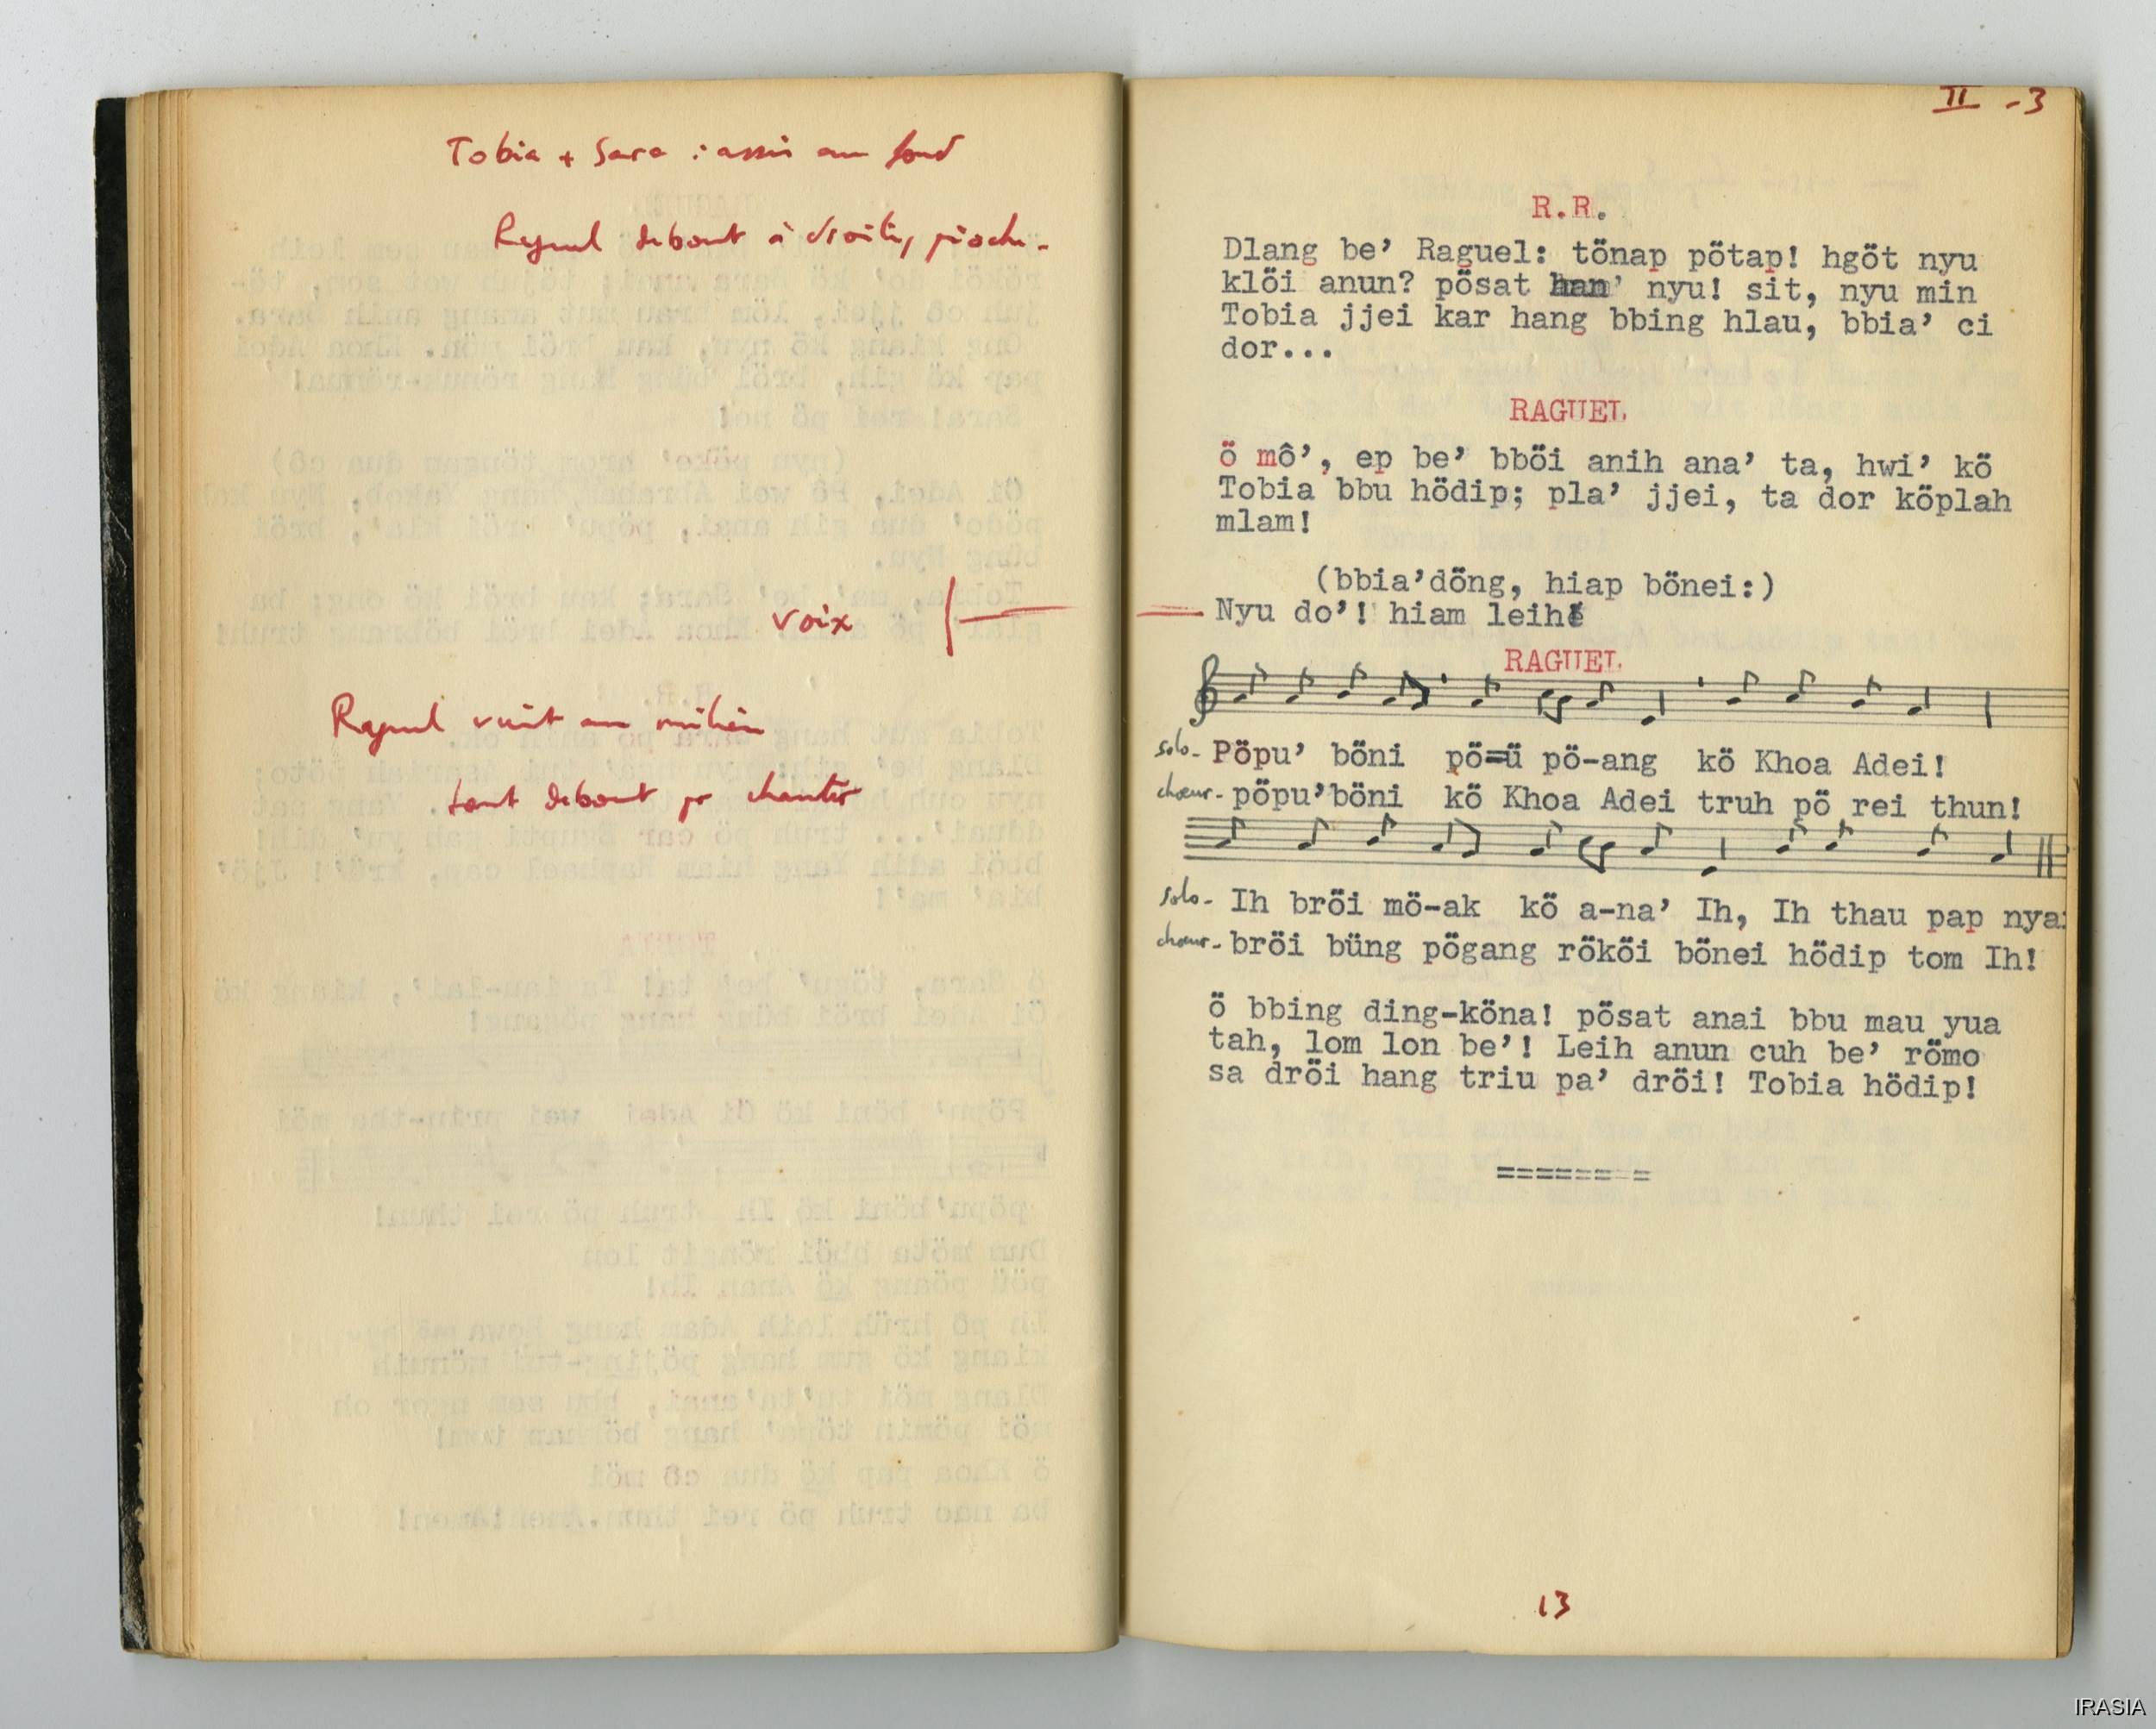 Tobia + Sara : assis au fond
Raguel debout à droite, pioche.
voix
Raguel vient au milieu
tout debout pr chanter
II - 3
R.R.
Dlang be’ Raguel: tönap pötap! hgöt nyu
klöi anun? pösat han’ nyu! sit, nyu min
Tobia jjei kar hang bbing hlau, bbia’ ci
dor...
RAGUEL
ö mô’, ep be’ bböi anih ana’ ta, hwi’ kö
Tobia bbu hödip; pla’ jjei, ta dor köplah
mlam!
(bbia’döng, hiap bönei:)
Nyu do’! hiam leih
RAGUEL
solo- Pöpu’ böni pö=ü pö-ang kö Khoa Adei!
chœur- pöpu’böni kö Khoa Adei truh pö rei thun!
solo- Ih bröi mö-ak kö a-na’ Ih, Ih thau pap nya
chœur- bröi büng pögang rököi bönei hödip tom Ih!
ö bbing ding-köna! pösat anai bbu mau yua
tah, lom lon be’! Leih anun cuh be’ römo
sa dröi hang triu pa’ dröi! Tobia hödip!
========
13
IRASIA